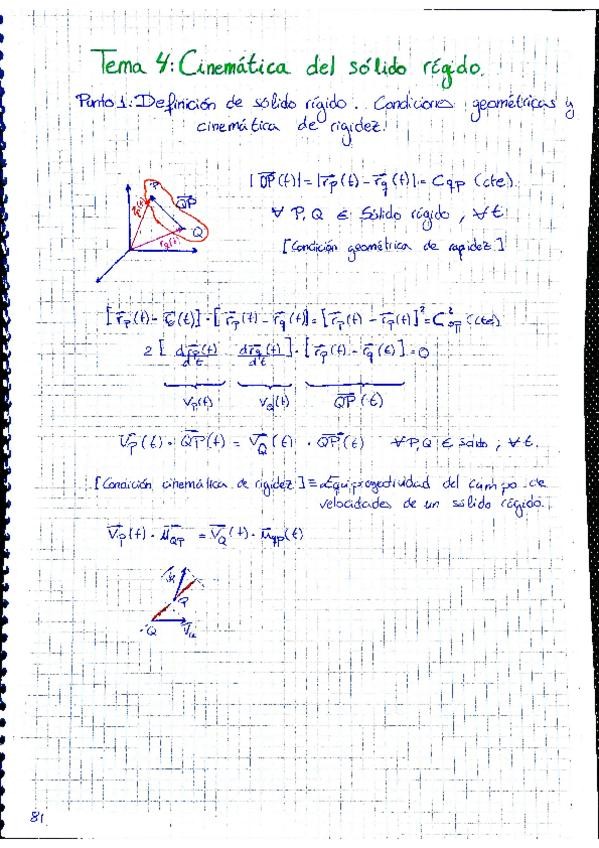 Tema 4: Cinemática del sólido rígido.
Punto 1: Definición de sólido rígido. Condiciones geométricas y
cinemática de rigidez.
P
QP
Q
r_p(t)
r_q(t)
|QP(t)| = |r_p(t) - r_q(t)| = C_QP (cte)
∀ P, Q ∈ Sólido rígido, ∀t
[Condición geométrica de rapidez]
[r_p(t) - r_q(t)] · [r_p(t) - r_q(t)] = [r_p(t) - r_q(t)]² = C²_QP (cte)
2 [ dr_p(t)/dt dr_q(t)/dt ] · [r_p(t) - r_q(t)] = 0
V_p(t) V_Q(t) QP(t)
V_p(t) · QP(t) = V_Q(t) · QP(t) ∀ P, Q ∈ sólido, ∀t.
[Condición cinemática de rigidez] ≡ Equiproyectividad del campo de
velocidades de un sólido rígido.
V_p(t) · μ_QP = V_Q(t) · μ_QP(t)
P
Q
81